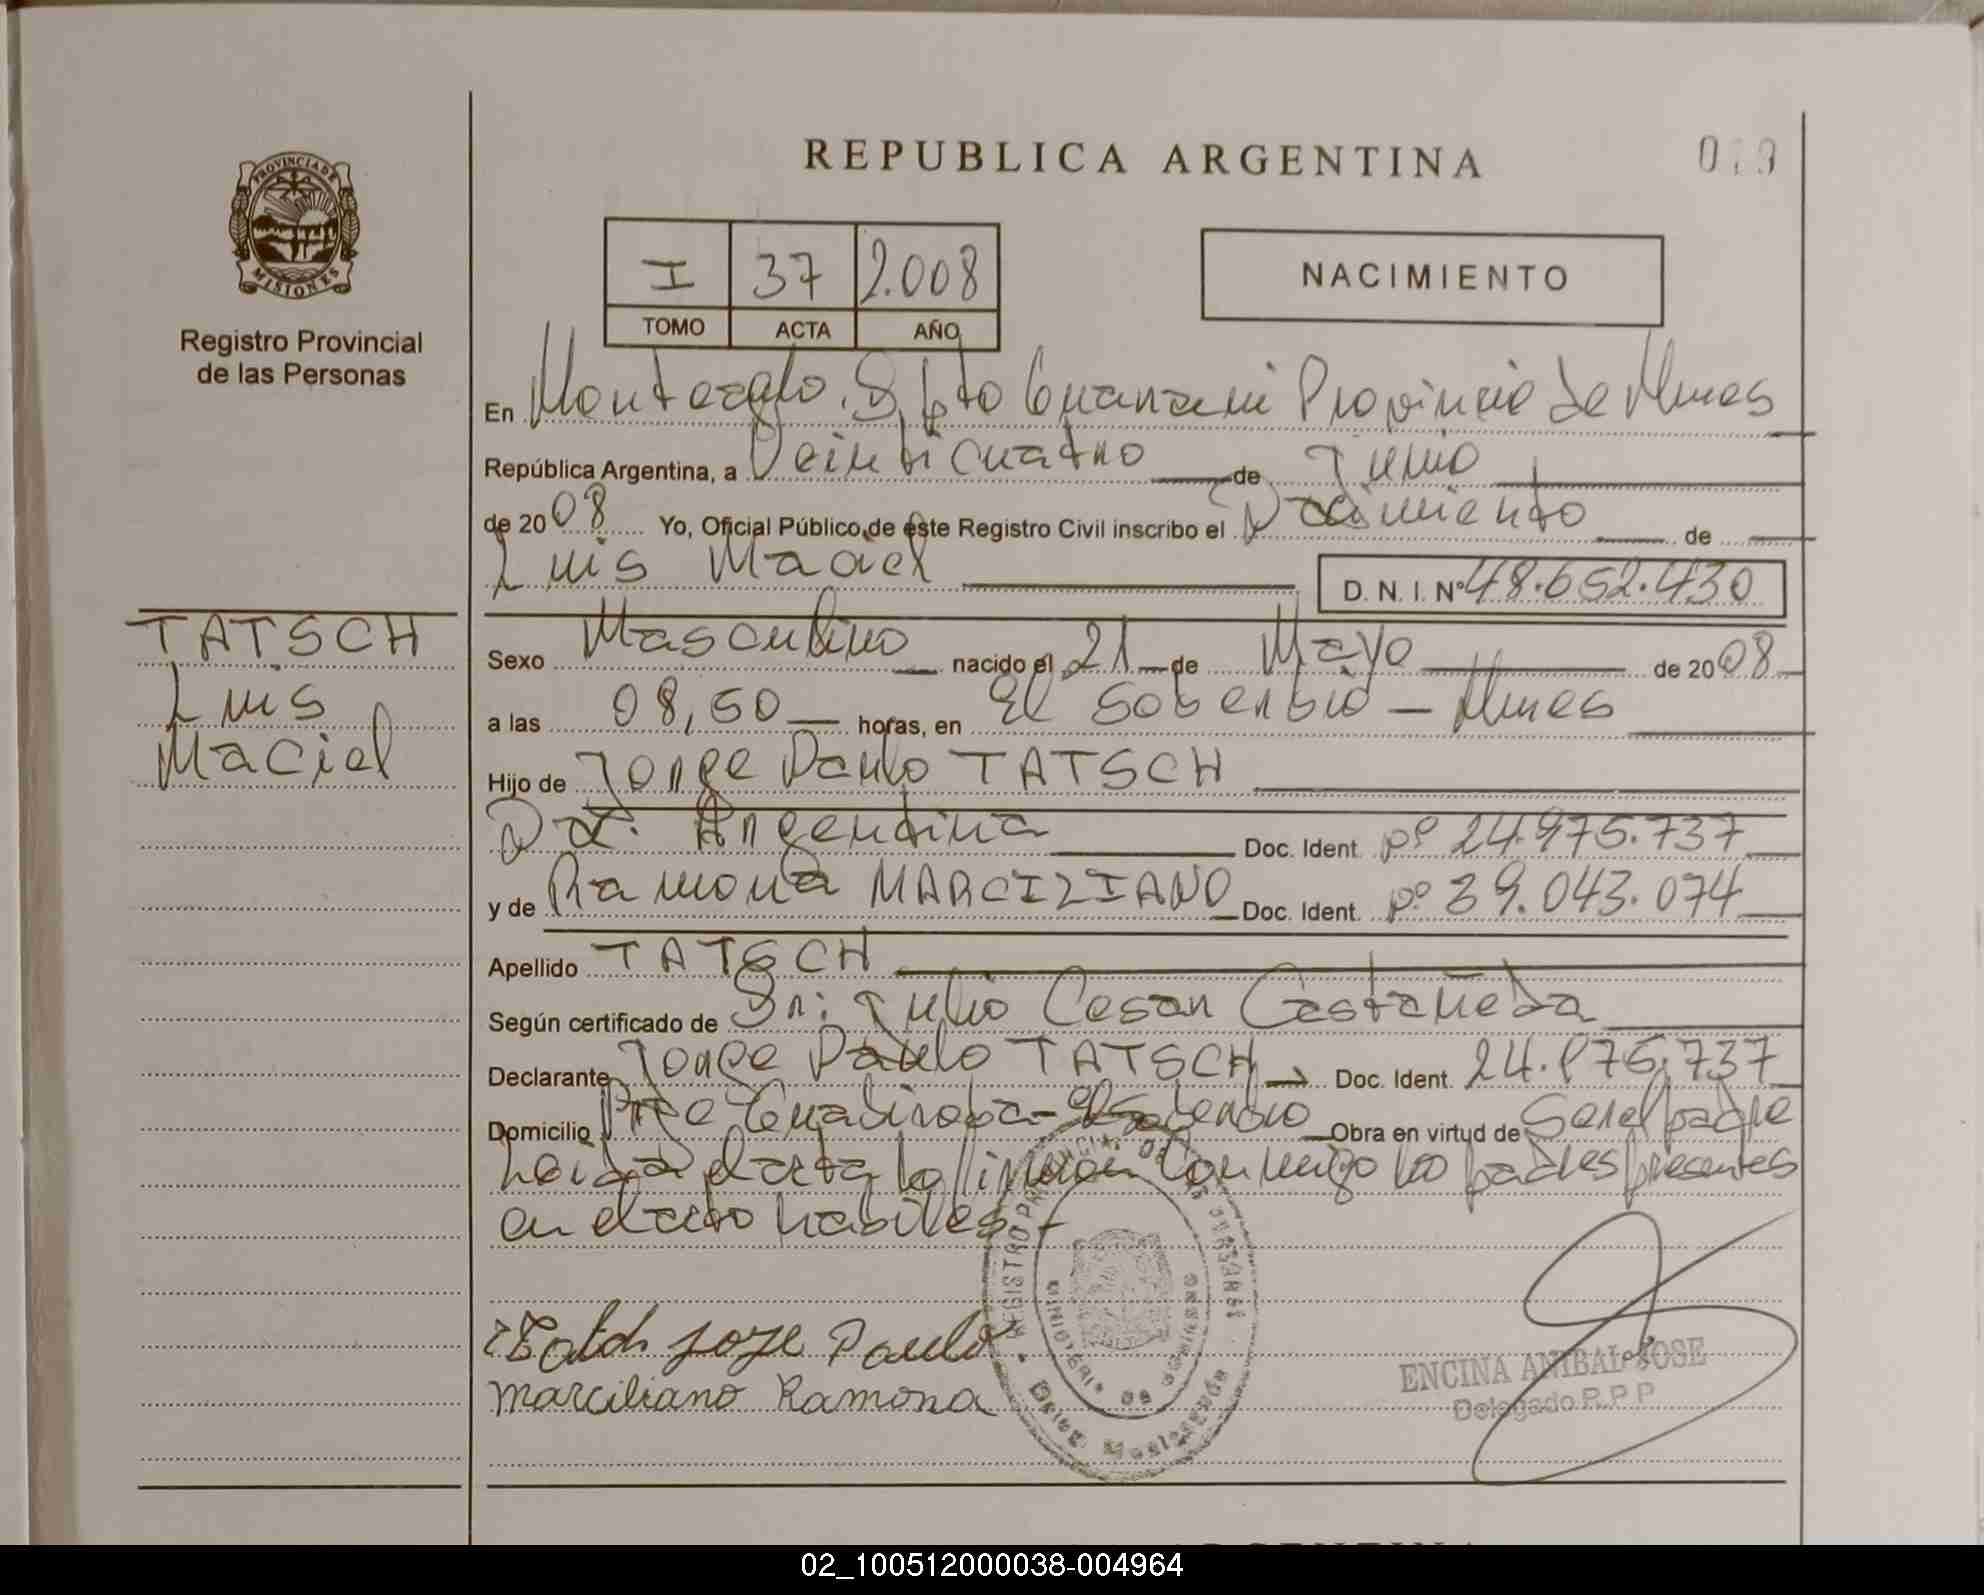 REPUBLICA ARGENTINA
PROVINCIA DE
MISIONES
Registro Provincial
de las Personas
I 37 2.008
TOMO ACTA AÑO
NACIMIENTO
En Monteagdo. Dpto Guarani Provincia de Mnes
República Argentina, a Veinticuatro de Junio
de 2008 Yo, Oficial Público de este Registro Civil inscribo el Nacimiento de
Luis Maciel
D. N. I. Nº 48.652.430
TATSCH
Luis
Maciel
Sexo Masculino nacido el 21 de Mayo de 2008
a las 08,50 horas, en El Soberbio - Mnes
Hijo de Jorge Paulo TATSCH
Nac. Argentina Doc. Ident. Nº 24.975.737
y de Ramona MARCILIANO Doc. Ident. Nº 39.043.074
Apellido TATSCH
Según certificado de Dr: Julio Cesar Castañeda
Declarante Jorge Paulo TATSCH Doc. Ident. 24.975.737
Domicilio Pje Guabiroba - El Soberbio Obra en virtud de Ser el padre
Leida el acta la firman conmigo los padres presentes
en el acto habiles -
Jorje Paulo
Marciliano Ramona
REGISTRO PROVINCIAL DE LAS PERSONAS
MINISTERIO DE GOBIERNO
ENCINA ANIBAL JOSE
Delegado R.P.P
02_100512000038-004964